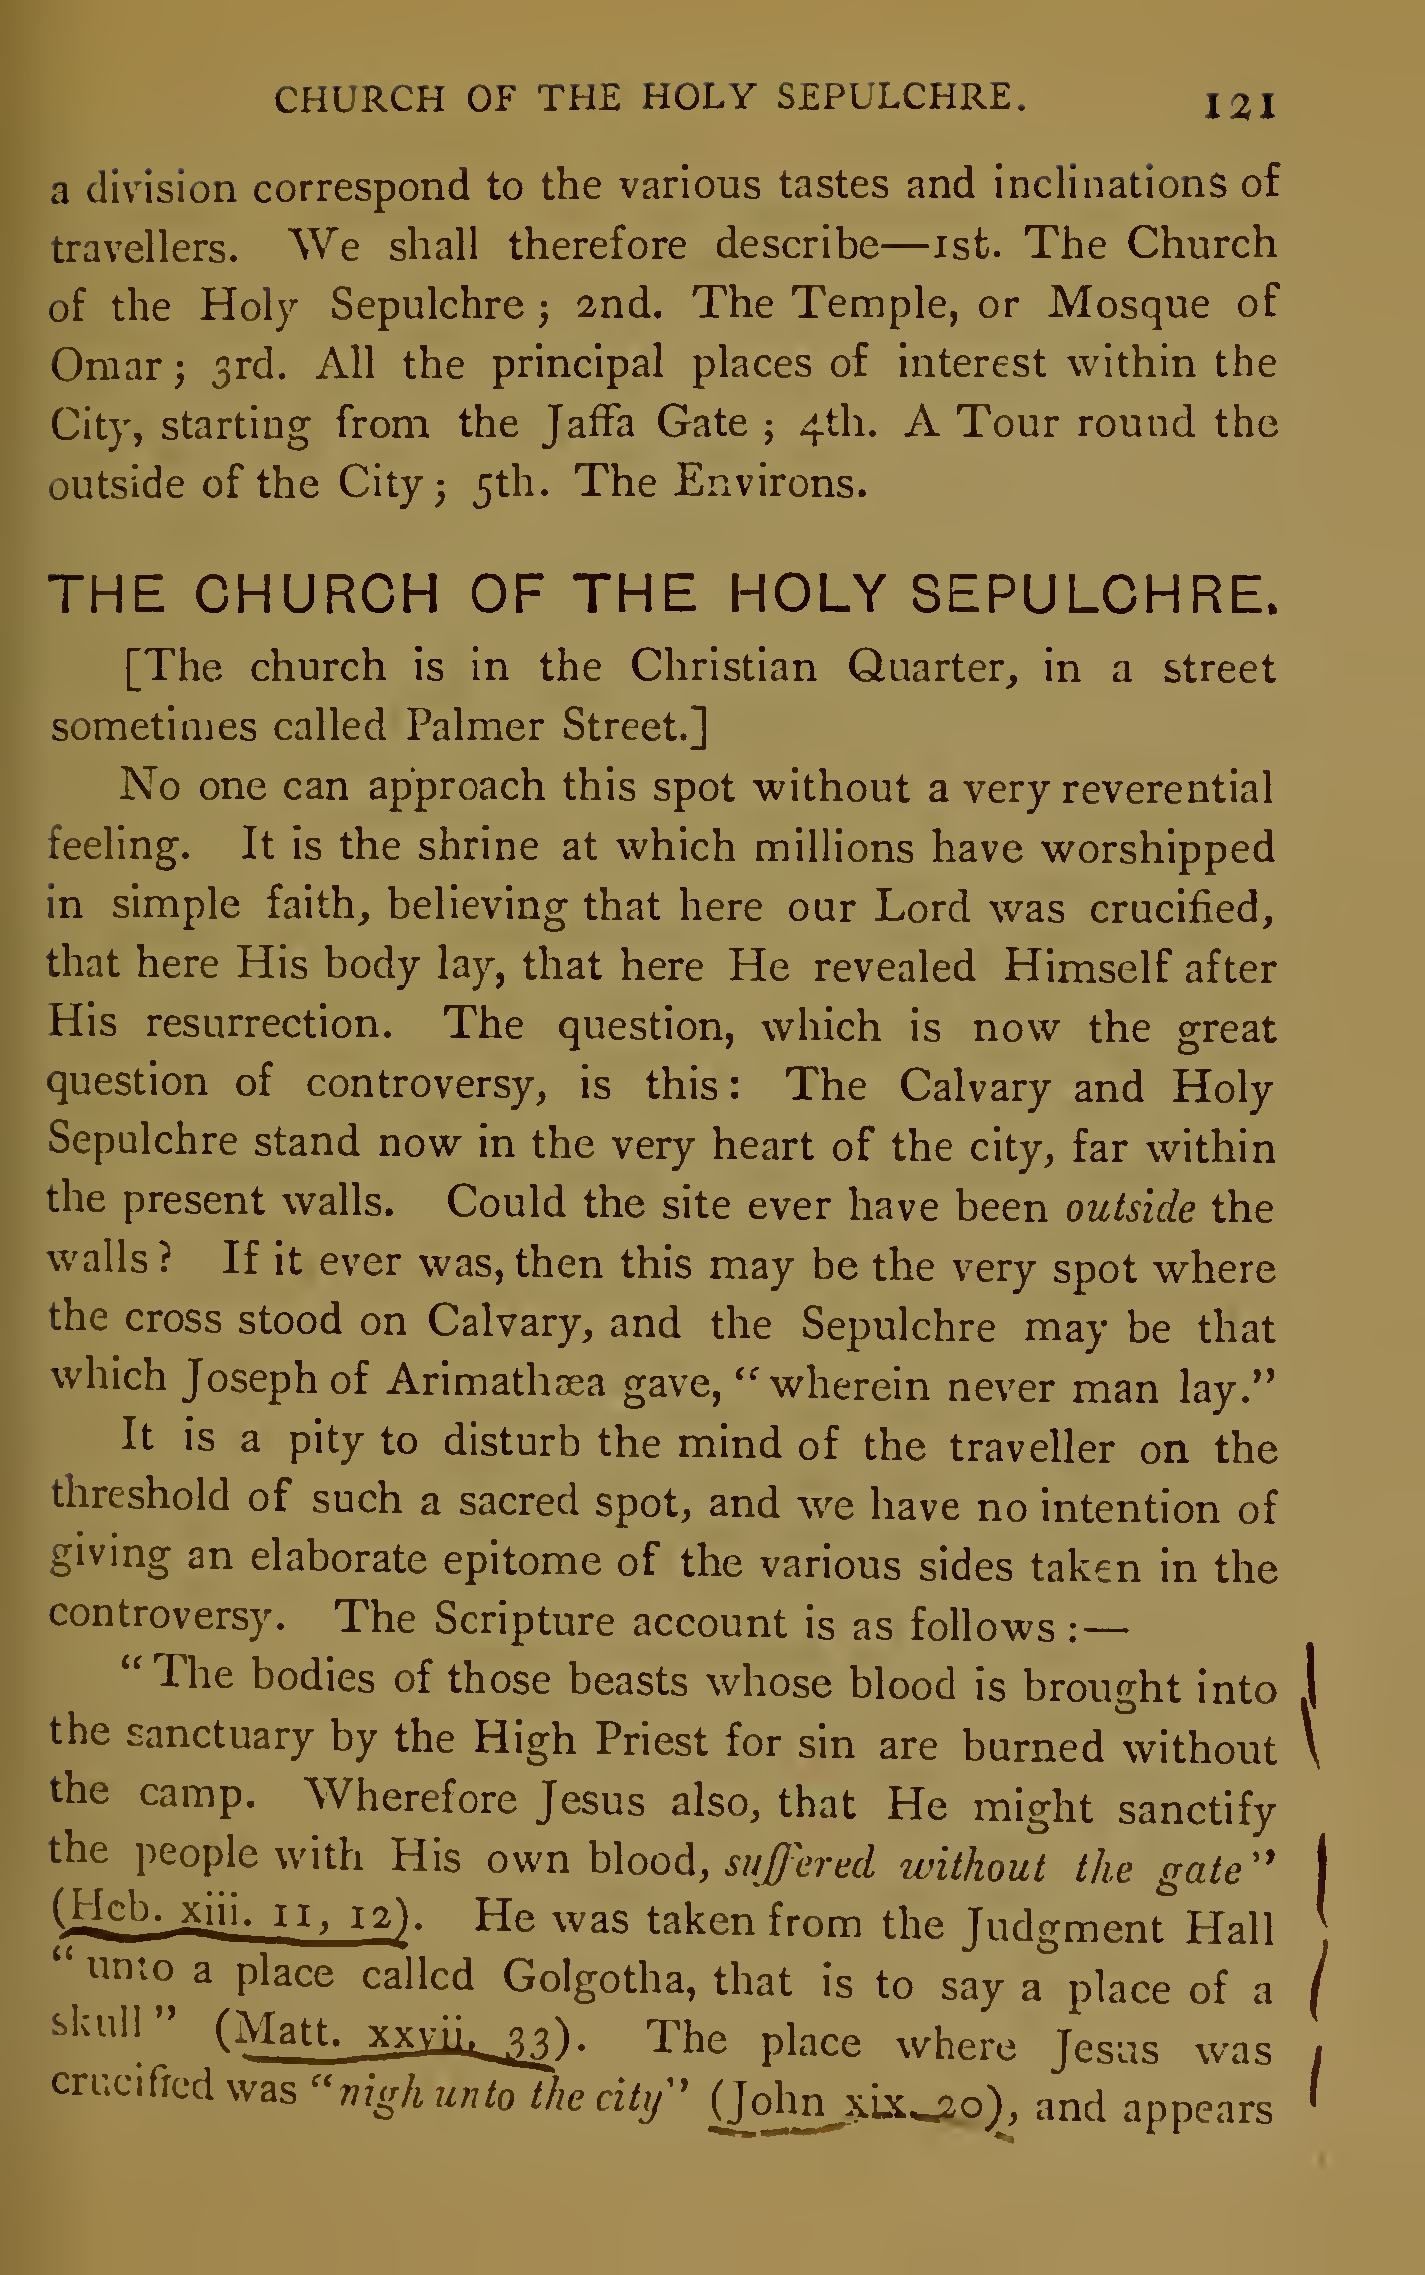 CHURCH OF THE HOLY SEPULCHRE. 121
a division correspond to the various tastes and inclinations of
travellers. We shall therefore describe—1st. The Church
of the Holy Sepulchre ; 2nd. The Temple, or Mosque of
Omar ; 3rd. All the principal places of interest within the
City, starting from the Jaffa Gate ; 4th. A Tour round the
outside of the City ; 5th. The Environs.
THE CHURCH OF THE HOLY SEPULCHRE.
[The church is in the Christian Quarter, in a street
sometimes called Palmer Street.]
No one can approach this spot without a very reverential
feeling. It is the shrine at which millions have worshipped
in simple faith, believing that here our Lord was crucified,
that here His body lay, that here He revealed Himself after
His resurrection. The question, which is now the great
question of controversy, is this : The Calvary and Holy
Sepulchre stand now in the very heart of the city, far within
the present walls. Could the site ever have been outside the
walls ? If it ever was, then this may be the very spot where
the cross stood on Calvary, and the Sepulchre may be that
which Joseph of Arimathæa gave, “ wherein never man lay.”
It is a pity to disturb the mind of the traveller on the
threshold of such a sacred spot, and we have no intention of
giving an elaborate epitome of the various sides taken in the
controversy. The Scripture account is as follows :—
“ The bodies of those beasts whose blood is brought into
the sanctuary by the High Priest for sin are burned without
the camp. Wherefore Jesus also, that He might sanctify
the people with His own blood, suffered without the gate”
(Heb. xiii. 11, 12). He was taken from the Judgment Hall
“ unto a place called Golgotha, that is to say a place of a
skull ” (Matt. xxvii. 33). The place where Jesus was
crucified was “nigh unto the city” (John xix. 20), and appears